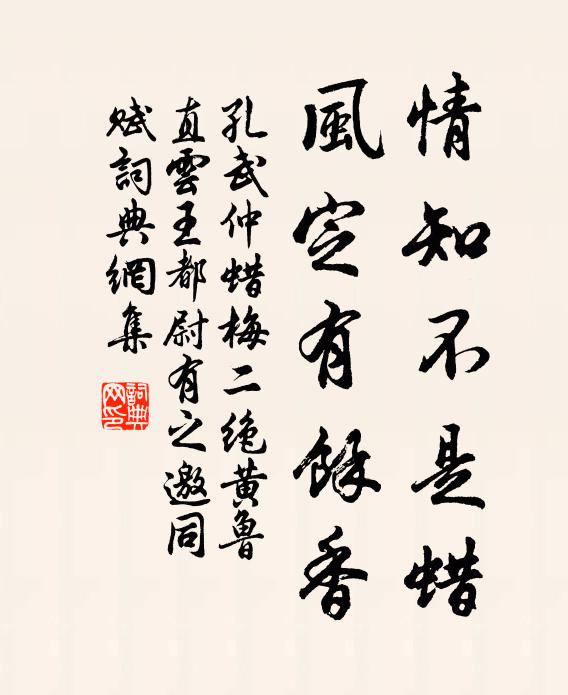 情知不是蜡
風定有餘香
孔武仲蜡梅二绝黄魯
直雲王都尉有之邀同
赋詞典網集
詞典
网印